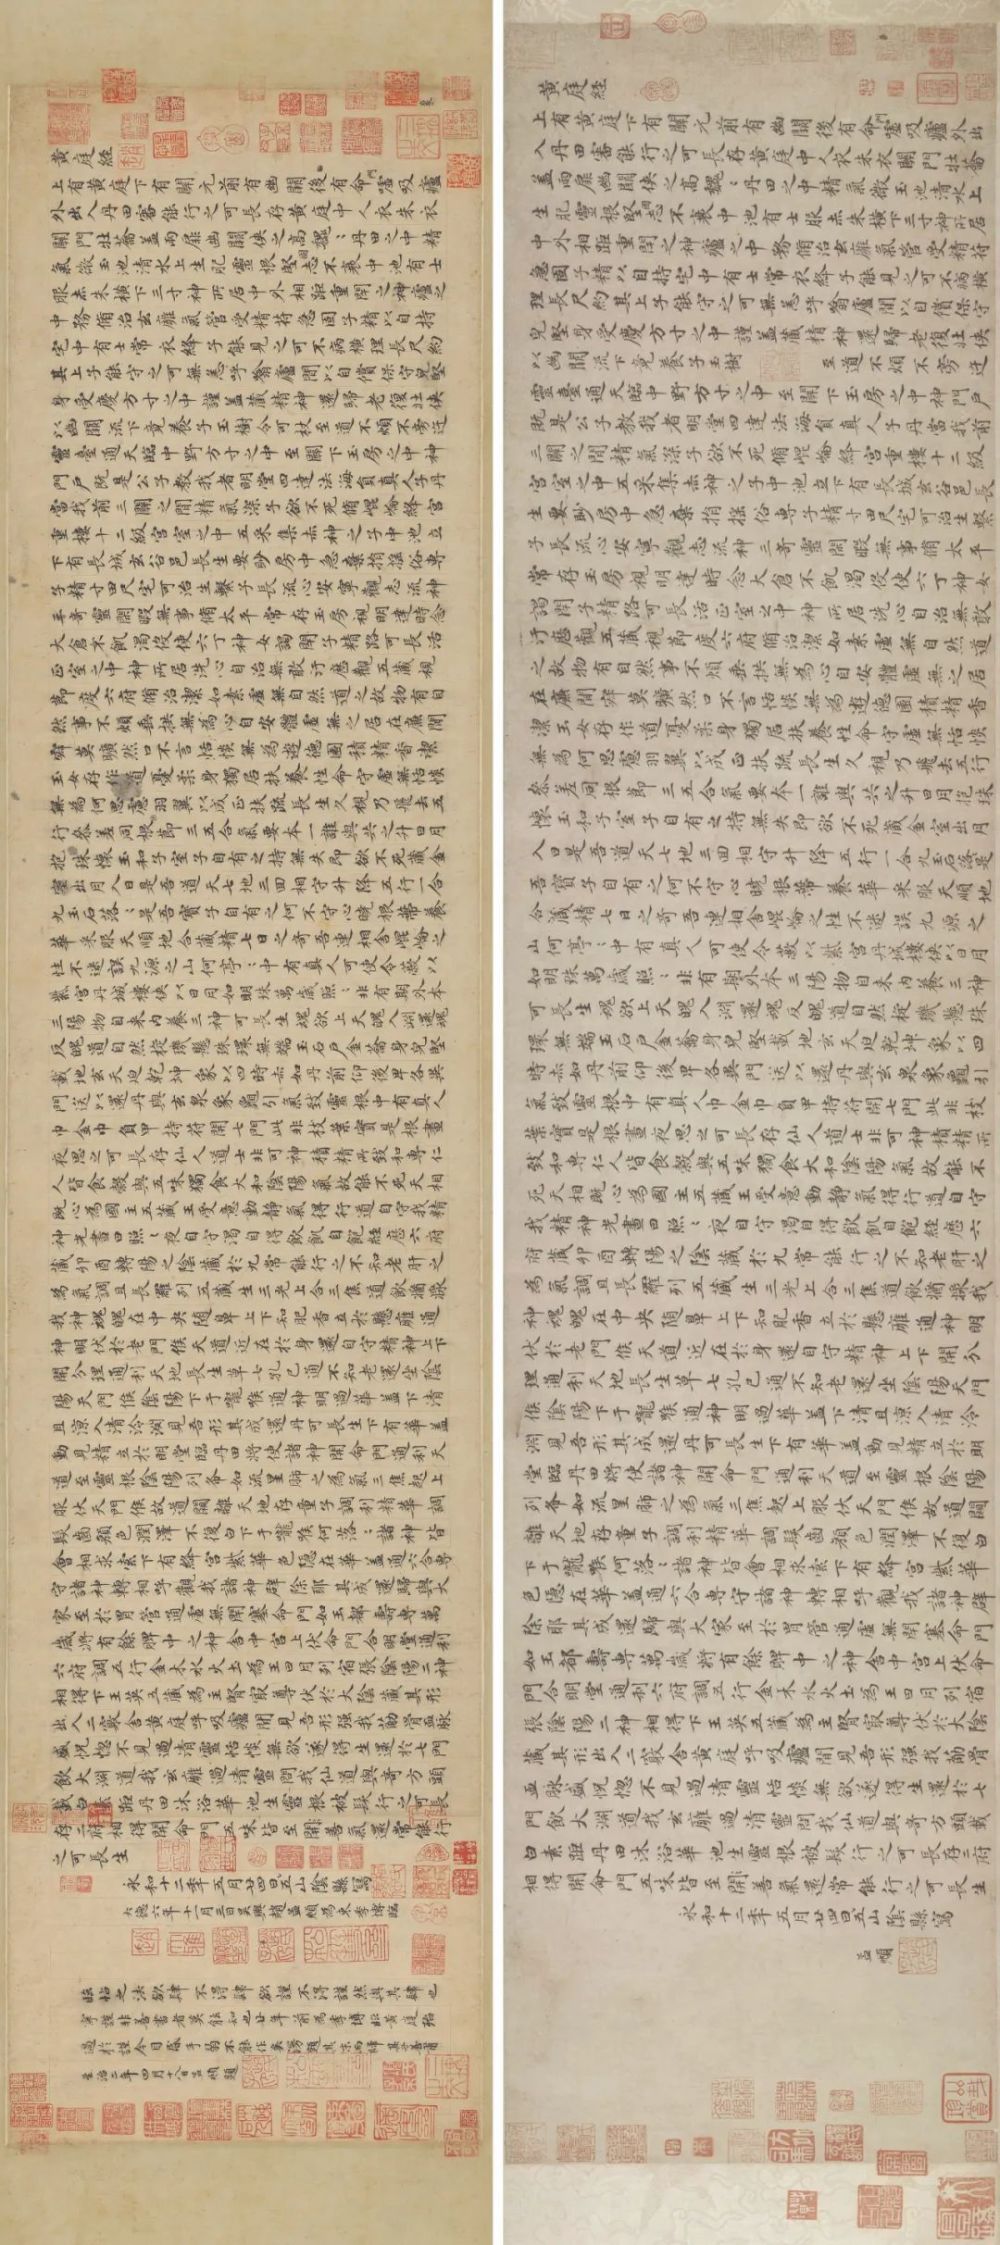 黄庭經
上有黄庭下有關元前有幽關後有命門噓吸廬
外出入丹田審能行之可長存黄庭中人衣朱衣
關門壯蘥蓋兩扉幽關俠之高巍巍丹田之中精
氣微玉池清水上生肥靈根堅固志不衰中池有士
服赤朱横下三寸神所居中外相距重閉之神廬之
中務脩治玄䧹氣管受精符急固子精以自持
宅中有士常衣絳子能見之可不病横理長尺約
其上子能守之可無恙呼翕廬間以自償保守完堅
身受慶方寸之中謹蓋藏精神還歸老復壯俠
以幽關流下竟養子玉樹令可杖至道不煩不旁迕
靈臺通天臨中野方寸之中至關下玉房之中神
門戶既是公子教我者明堂四達法海員真人子丹
當我前三關之間精氣深子欲不死脩崐崘絳宮
重樓十二級宮室之中五采集赤神之子中池立
下有長城玄谷邑長生要眇房中急棄捐摇俗專
子精寸田尺宅可治生繫子長流心安寧觀志流神
三奇靈閑暇無事脩太平常存玉房視明達時念
大倉不飢渴役使六丁神女謁閉子精路可長活
正室之中神所居洗心自治無敢汙歷觀五藏視
節度六府脩治潔如素虛無自然道之故物有自
然事不煩垂拱無為心自安體虛無之居在廉間
㝱莫曠然口不言恬惔無為遊德園積精香潔
玉女存作道憂柔身獨居扶養性命守虛無恬惔
無為何思慮羽翼以成正扶疏長生久視乃飛去五
行叅差同根節三五合氣要本一誰與共之升日月
抱珠懷玉和子室子自有之持無失即欲不死藏金
室出月入日是吾道天七地三回相守升降五行一合
九玉石落落是吾寶子自有之何不守心曉根蒂養
華采服天順地合藏精七日之奇吾連相舍崐崘之
性不迷誤九源之山何亭亭中有真人可使令蔽以
紫宮丹城樓俠以日月如明珠萬歲照照非有期外本
三陽物自來內養三神可長生魂欲上天魄入淵還魂
反魄道自然㨀璣懸珠環無端玉石戶金蘥身完堅
載地玄天迫乾坤象以四時赤如丹前仰後卑各異
門送以還丹與玄泉象龜引氣致靈根中有真人
巾金巾負甲持符開七門此非枝葉實是根晝
夜思之可長存仙人道士非可神積精所致和專仁
人皆食穀與五味獨食大和陰陽氣故能不死天相
既心為國主五藏王受意動靜氣得行道自守我精
神光晝日照照夜自守渴自得飲飢自飽經歷六府
藏卯酉轉陽之陰藏於九常能行之不知老肝之
為氣調且長羅列五藏生三光上合三焦道飲醬漿
我神魂魄在中央隨鼻上下知肥香立於懸雍通
神明伏於老門候天道近在於身還自守精神上下
開分理通利天地長生草七孔已通不知老還坐陰
陽天門候陰陽下于嚨喉通神明過華蓋下清
且涼入清泠淵見吾形其成還丹可長生下有華蓋
動見精立於明堂臨丹田將使諸神開命門通利天
道至靈根陰陽列布如流星肺之為氣三焦起上
服伏天門候故道闚離天地存童子調利精華調
髮齒顏色潤澤不復白下于嚨喉何落落諸神皆
會相求索下有絳宮紫華色隱在華蓋通六合專
守諸神轉相呼觀我諸神辟除耶其成還歸與大
家至於胃管通虛無閉塞命門如玉都壽專萬
歲將有餘脾中之神舍中宮上伏命門合明堂通利
六府調五行金木水火土為王日月列宿張陰陽二神
相得下玉英五藏為主腎㝡尊伏於大陰藏其形
出入二竅舍黄庭呼吸廬間見吾形强我筋骨血脉
盛怳惚不見過清靈恬惔無欲遂得生還於七門
飲大淵道我玄䧹過清靈問我仙道與奇方頭
載白素距丹田沐浴華池生靈根被髮行之可長
存二府相得開命門五味皆至開善氣還常能行
之可長生
永和十二年五月廿四日五山陰縣寫
大德六年十一月三日吳興趙孟頫為末季博臨
臨帖之法欲肆不得肆欲謹不得謹然與其肆也
寧謹非善書者莫能知也廿年前為季博臨黄庭殆
至治二年四月十八日孟頫題
黄庭經
上有黄庭下有關元前有幽關後有命門噓吸廬外出
入丹田審能行之可長存黄庭中人衣朱衣關門壯蘥
蓋兩扉幽關俠之高巍巍丹田之中精氣微玉池清水上
生肥靈根堅固志不衰中池有士服赤朱横下三寸神所居
中外相距重閉之神廬之中務脩治玄䧹氣管受精符
急固子精以自持宅中有士常衣絳子能見之可不病横
理長尺約其上子能守之可無恙呼翕廬間以自償保守
完堅身受慶方寸之中謹蓋藏精神還歸老復壯俠
以幽關流下竟養子玉樹 至道不煩不旁迕
靈臺通天臨中野方寸之中至關下玉房之中神門戶
既是公子教我者明堂四達法海員真人子丹當我前
三關之間精氣深子欲不死脩崐崘絳宮重樓十二級
宮室之中五采集赤神之子中池立下有長城玄谷邑長
生要眇房中急棄捐摇俗專子精寸田尺宅可治生繫
子長流心安寧觀志流神三奇靈閑暇無事脩太平
常存玉房視明達時念大倉不飢渴役使六丁神女
謁閉子精路可長活正室之中神所居洗心自治無敢
汙歷觀五藏視節度六府脩治潔如素虛無自然道
之故物有自然事不煩垂拱無為心自安體虛無之居
在廉間㝱莫曠然口不言恬惔無為遊德園積精香
潔玉女存作道憂柔身獨居扶養性命守虛無恬惔
無為何思慮羽翼以成正扶疏長生久視乃飛去五行
叅差同根節三五合氣要本一誰與共之升日月抱珠
懷玉和子室子自有之持無失即欲不死藏金室出月
入日是吾道天七地三回相守升降五行一合九玉石落是
吾寶子自有之何不守心曉根蒂養華采服天順地
合藏精七日之奇吾連相舍崐崘之性不迷誤九源之
山何亭亭中有真人可使令蔽以紫宮丹城樓俠以日月
如明珠萬歲照照非有期外本三陽物自來內養三神
可長生魂欲上天魄入淵還魂反魄道自然㨀璣懸珠
環無端玉石戶金蘥身完堅載地玄天迫乾坤象以四
時赤如丹前仰後卑各異門送以還丹與玄泉象龜引
氣致靈根中有真人巾金巾負甲持符開七門此非枝
葉實是根晝夜思之可長存仙人道士非可神積精所
致和專仁人皆食穀與五味獨食大和陰陽氣故能不
死天相既心為國主五藏王受意動靜氣得行道自守
我精神光晝日照照夜自守渴自得飲飢自飽經歷六
府藏卯酉轉陽之陰藏於九常能行之不知老肝之
為氣調且長羅列五藏生三光上合三焦道飲醬漿我
神魂魄在中央隨鼻上下知肥香立於懸雍通神明
伏於老門候天道近在於身還自守精神上下開分
理通利天地長生草七孔已通不知老還坐陰陽天門
候陰陽下于嚨喉通神明過華蓋下清且涼入清泠
淵見吾形其成還丹可長生下有華蓋動見精立於明
堂臨丹田將使諸神開命門通利天道至靈根陰陽
列布如流星肺之為氣三焦起上服伏天門候故道闚
離天地存童子調利精華調髮齒顏色潤澤不復白
下于嚨喉何落落諸神皆會相求索下有絳宮紫華
色隱在華蓋通六合專守諸神轉相呼觀我諸神辟
除耶其成還歸與大家至於胃管通虛無閉塞命門
如玉都壽專萬歲將有餘脾中之神舍中宮上伏命
門合明堂通利六府調五行金木水火土為王日月列宿
張陰陽二神相得下玉英五藏為主腎㝡尊伏於大陰
藏其形出入二竅舍黄庭呼吸廬間見吾形强我筋骨
血脉盛怳惚不見過清靈恬惔無欲遂得生還於七
門飲大淵道我玄䧹過清靈問我仙道與奇方頭載
白素距丹田沐浴華池生靈根被髮行之可長存二府
相得開命門五味皆至開善氣還常能行之可長生
永和十二年五月廿四日五山陰縣寫
孟頫